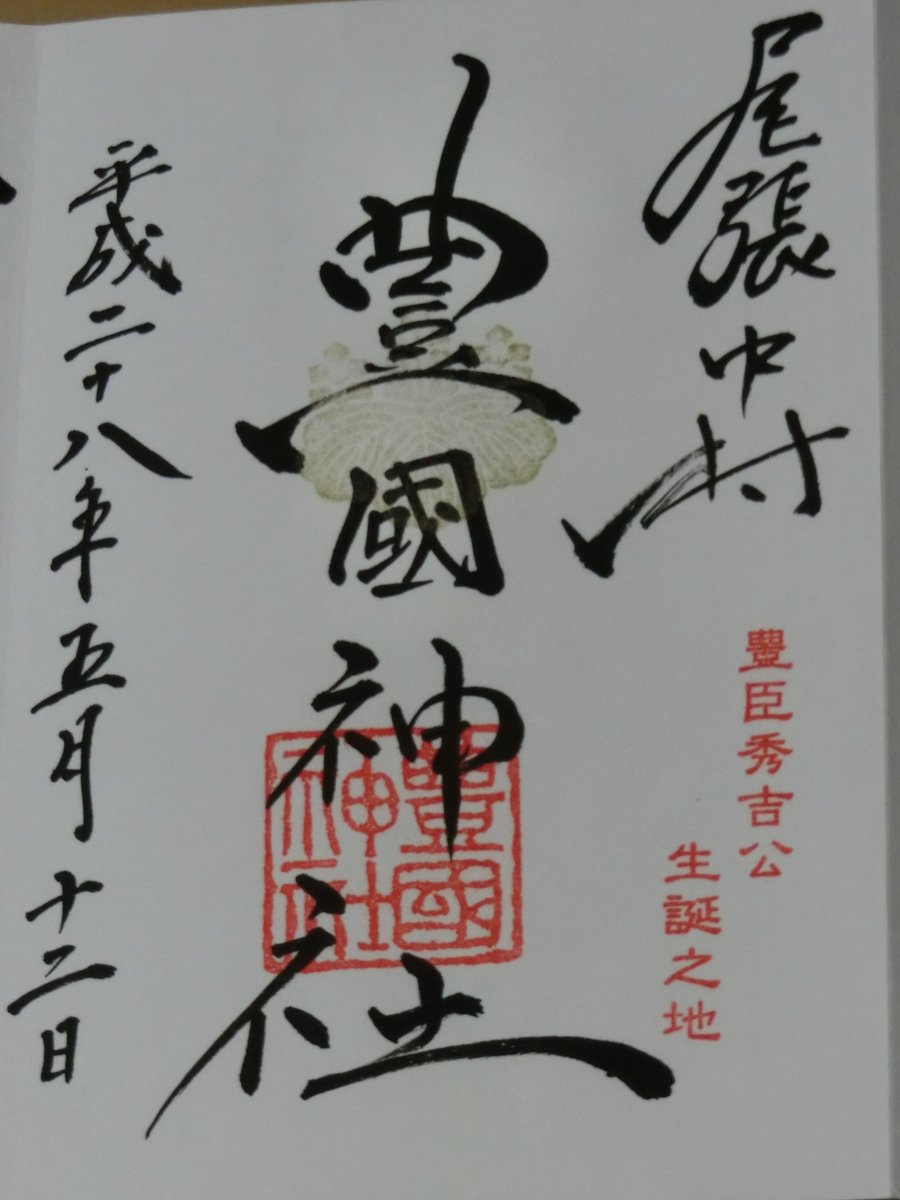 尾張中村
豐臣秀吉公
生誕之地
豐國神社
豐國
神社
平成二十八年五月十二日